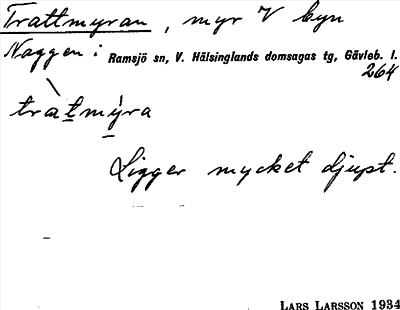 Trattmyran, myr V byn
Naggen: Ramsjö sn, V. Hälsinglands domsagas tg, Gävleb. l.
264
tràtmýra
Ligger mycket djupt.
LARS LARSSON 1934